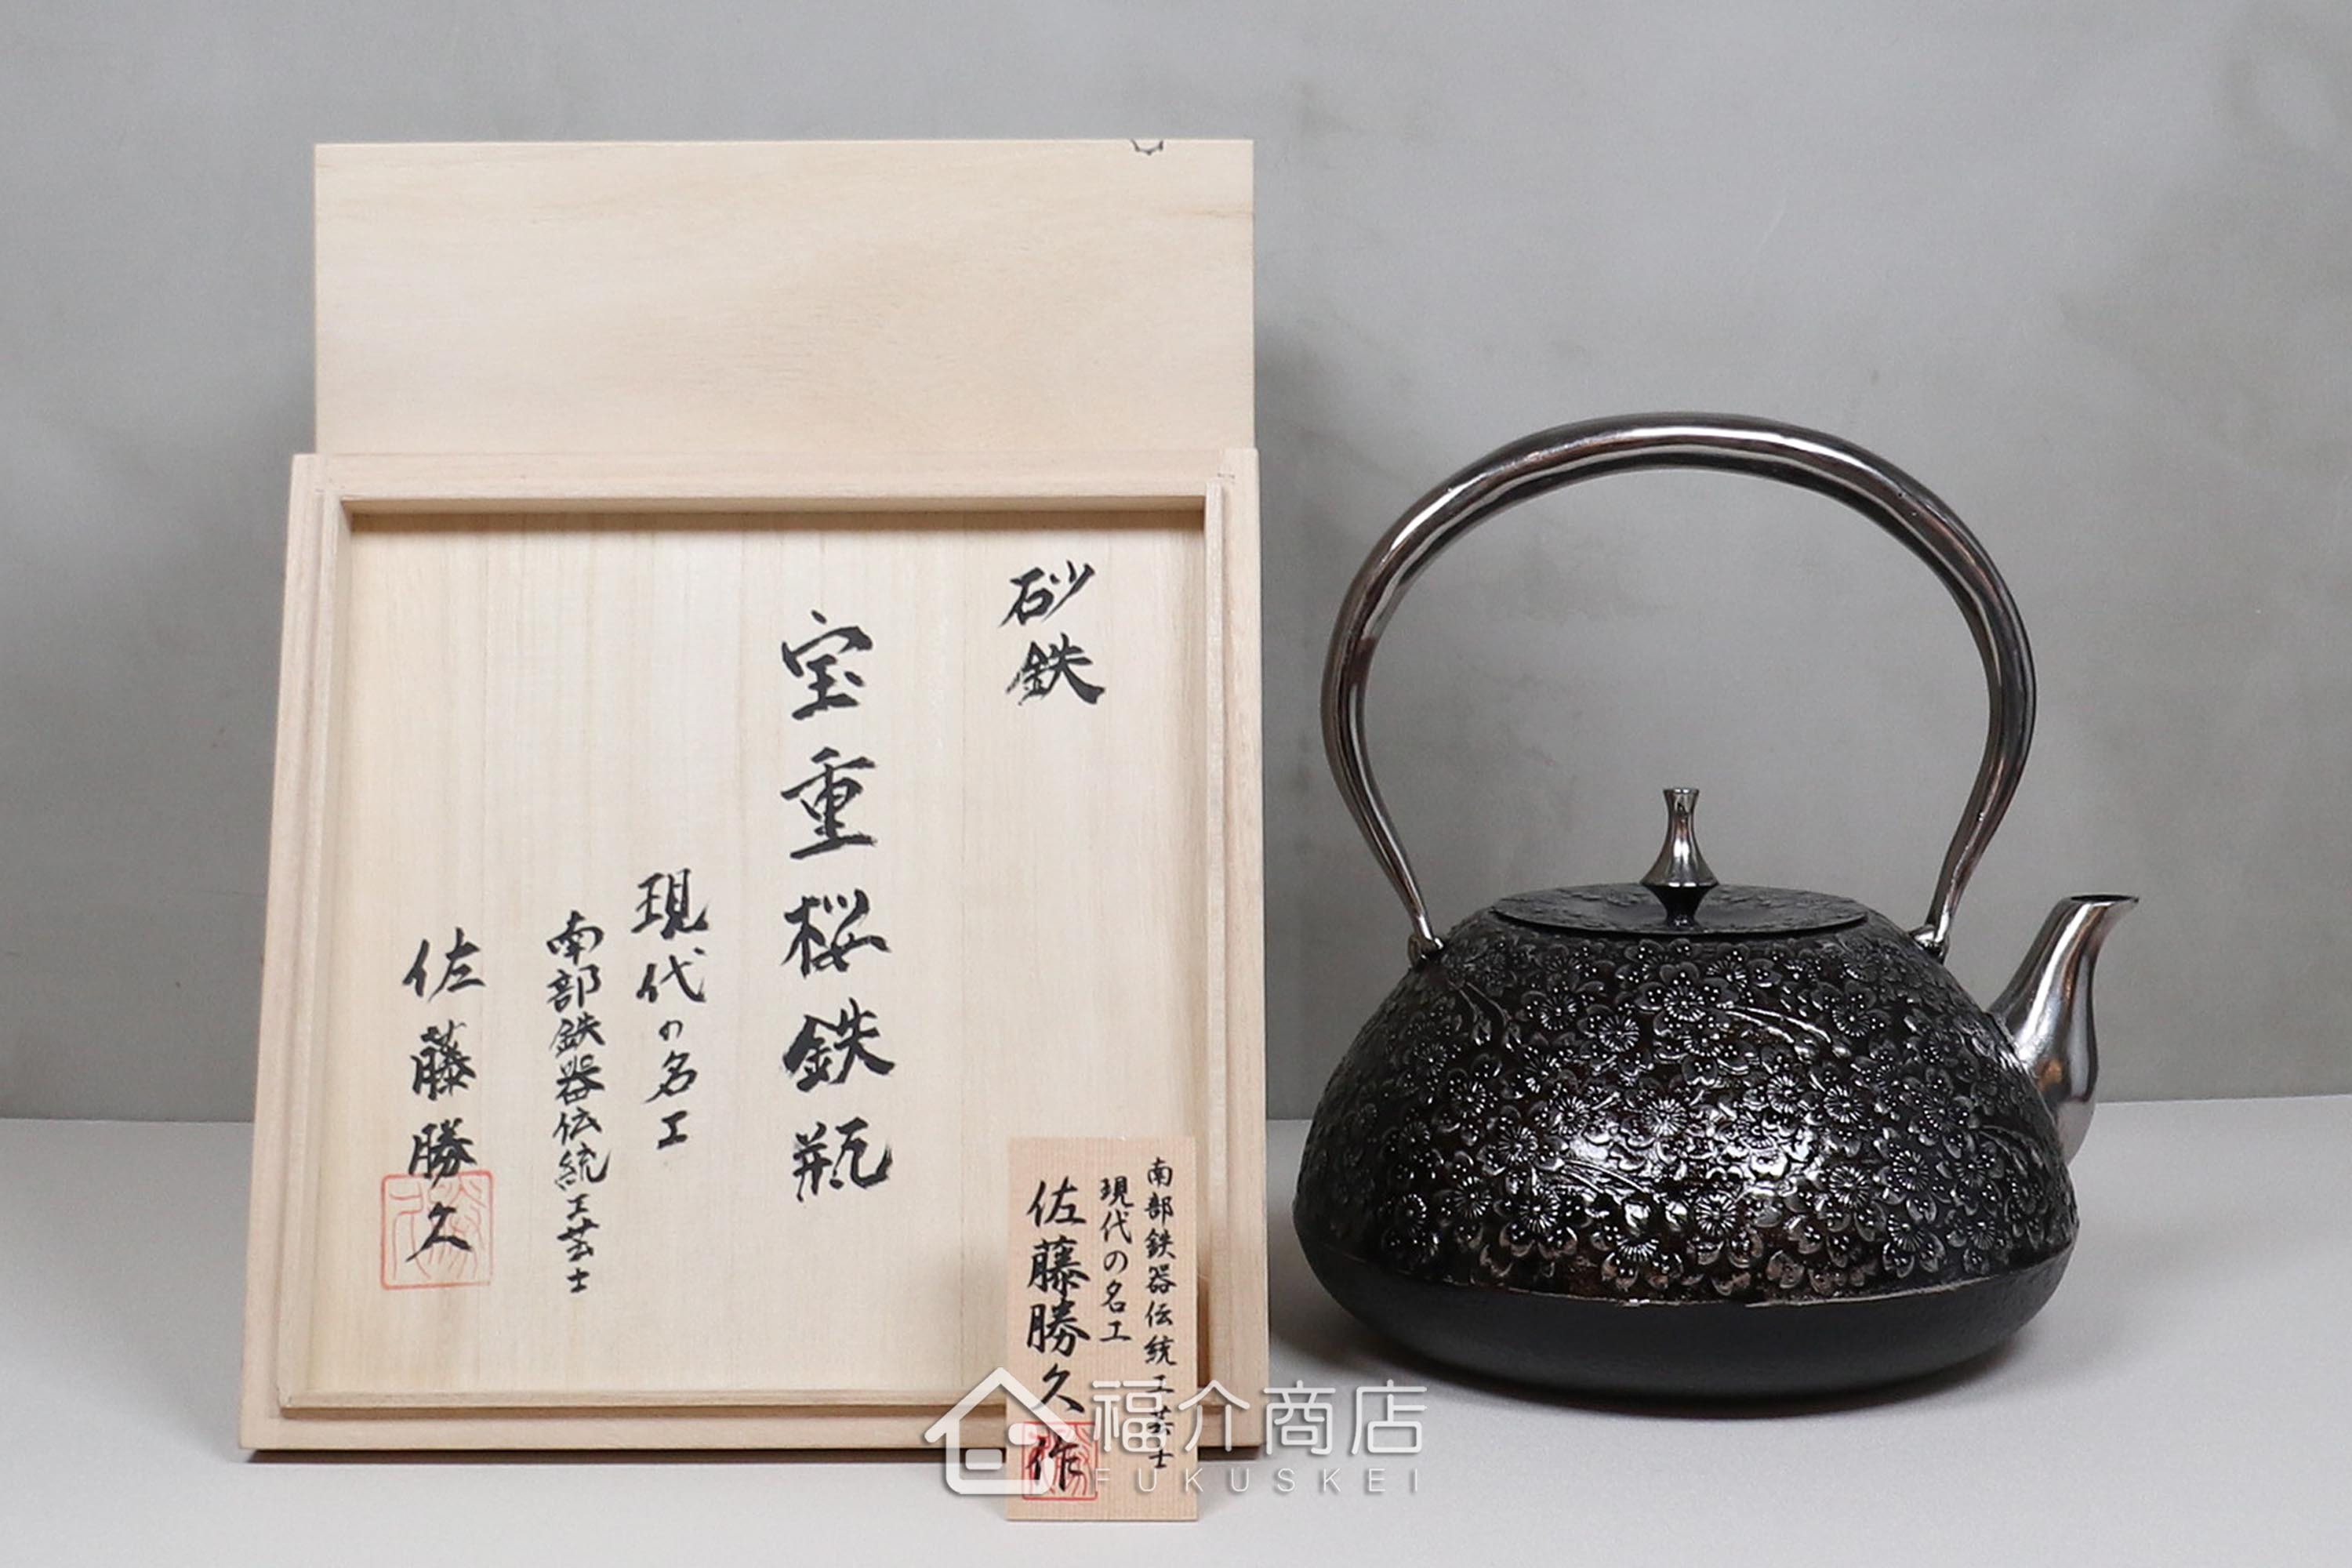 砂鉄
宝重桜鉄瓶
現代の名工
南部鉄器伝統工芸士
佐藤勝久
南部鉄器伝統工芸士
現代の名工
佐藤勝久作
福介商店
FUKUSKEI